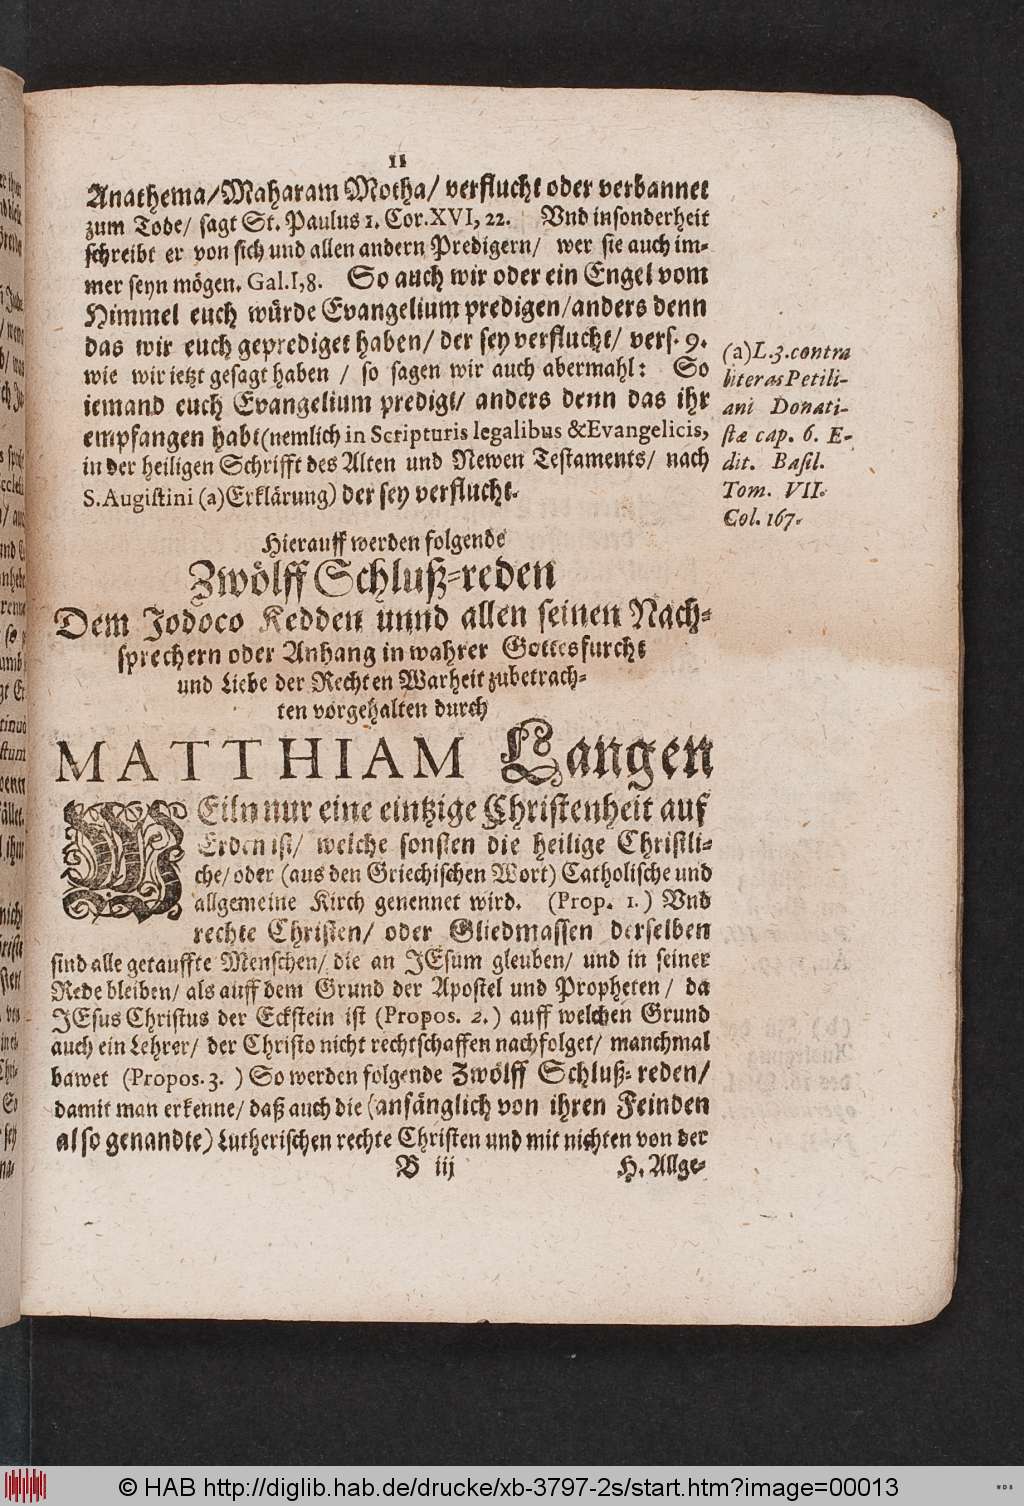 11
Anathema/Maharam Motha/ verflucht oder verbannet
zum Tode/ sagt St. Paulus 1. Cor.XVI, 22. Vnd insonderheit
schreibt er von sich und allen andern Predigern/ wer sie auch im-
mer seyn mögen. Gal.I,8. So auch wir oder ein Engel vom
Himmel euch würde Evangelium predigen/anders denn
das wir euch geprediget haben/ der sey verflucht/ vers. 9.
wie wir ietzt gesagt haben / so sagen wir auch abermahl: So
iemand euch Evangelium predigt/ anders denn das ihr
empfangen habt(nemlich in Scripturis legalibus &Evangelicis,
in der heiligen Schrifft des Alten und Newen Testaments/ nach
S. Augistini (a)Erklärung) der sey verflucht.
(a)L.3.contra
literas Petili-
ani Donati-
stæ cap. 6. E-
dit. Basil.
Tom. VII.
Col. 167.
Hierauff werden folgende
Zwölff Schluß-reden
Dem Jodoco Kedden unnd allen seinen Nach-
sprechern oder Anhang in wahrer Gottesfurcht
und Liebe der Rechten Warheit zubetrach-
ten vorgehalten durch
MATTHIAM Langen
WEiln nur eine eintzige Christenheit auf
Erden ist/ welche sonsten die heilige Christli-
che/ oder (aus den Griechischen Wort) Catholische und
allgemeine Kirch genennet wird. (Prop. 1.) Vnd
rechte Christen/ oder Gliedmassen derselben
sind alle getauffte Menschen/ die an JEsum gleuben/ und in seiner
Rede bleiben/ als auff dem Grund der Apostel und Propheten/ da
JEsus Christus der Eckstein ist (Propos. 2.) auff welchen Grund
auch ein Lehrer/ der Christo nicht rechtschaffen nachfolget/ manchmal
bawet (Propos. 3. ) So werden folgende Zwölff Schluß-reden/
damit man erkenne/ daß auch die (anfänglich von ihren Feinden
also genandte) Lutherischen rechte Christen und mit nichten von der
B iij H. Allge-
© HAB http://diglib.hab.de/drucke/xb-3797-2s/start.htm?image=00013